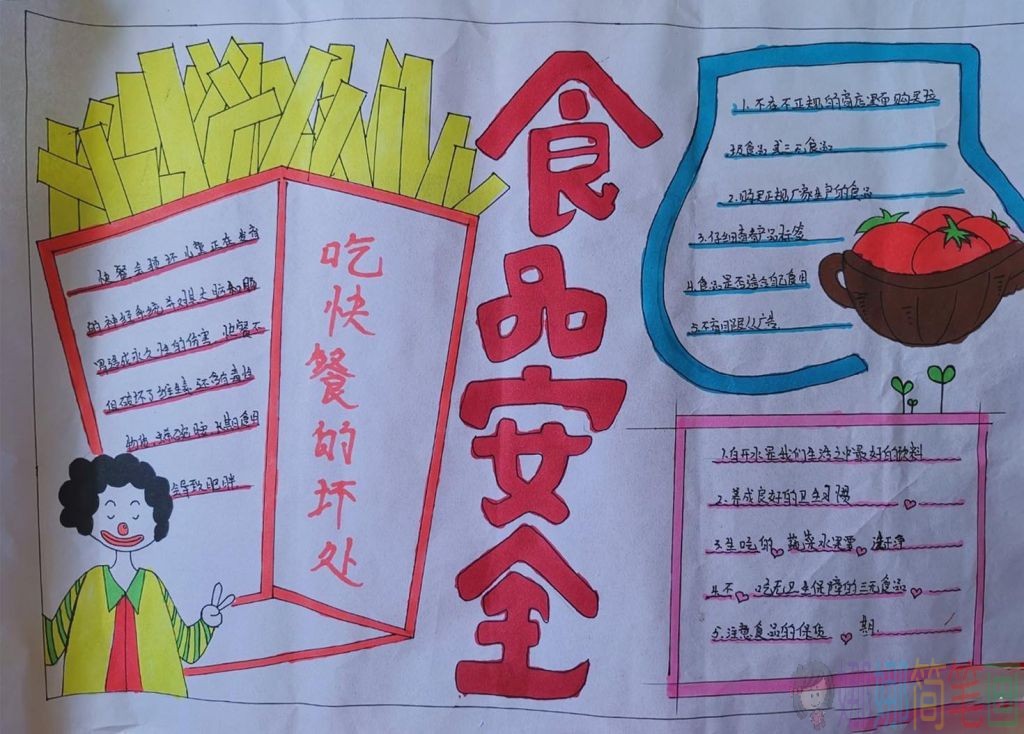 食品安全
吃快餐的坏处
快餐会损坏儿童正在发育
的神经系统并对其大脑和肠
胃造成永久性的伤害，快餐不
但破坏了维生素，还含有毒性
物质，长期食用
会导致肥胖。
1.不在不正规的商店里面购买垃
圾食品或三无食品
2.购买正规厂家生产的食品
3.仔细查看产品标签
4.食品是否适合自己食用
5.不盲目跟从广告
1.白开水是我们生活之中最好的饮料
2.养成良好的卫生习惯
3.生吃的蔬菜水果要洗干净
4.不吃无卫生保障的三无食品
5.注意食品的保质期.
简笔